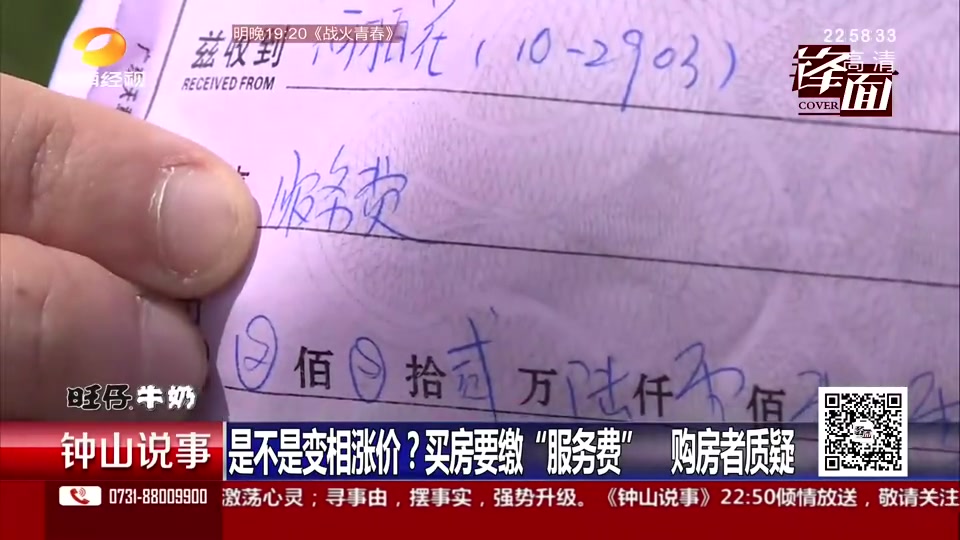 明晚19:20《战火青春》
22:58:33
高清
锋面
COVER
兹收到
(10-2903)
RECEIVED FROM
服务费
佰 拾贰万陆仟 佰
旺仔牛奶
钟山说事
是不是变相涨价？买房要缴“服务费” 购房者质疑
0731-88009900
激荡心灵；寻事由，摆事实，强势升级。《钟山说事》22:50倾情放送，敬请关注